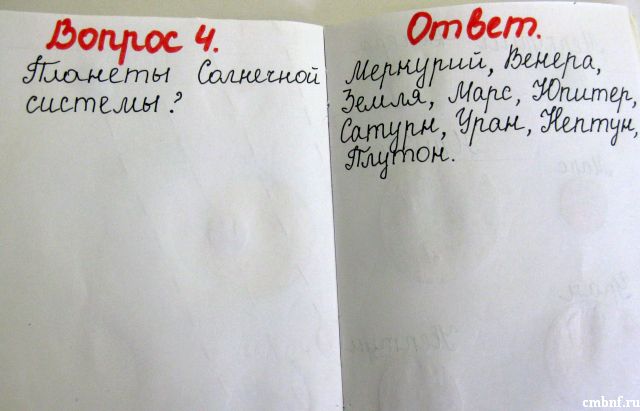 Вопрос 4.
Планеты Солнечной
системы?
Ответ.
Меркурий, Венера,
Земля, Марс, Юпитер,
Сатурн, Уран, Нептун,
Плутон.
Марс
Уран
Нептун
cmbnf.ru